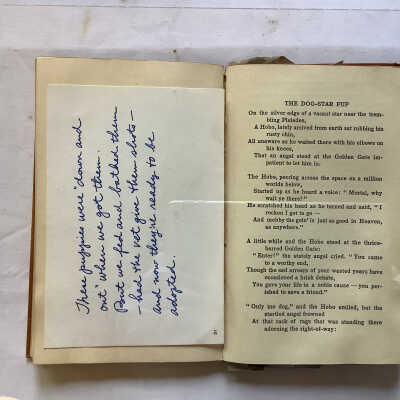 These puppies were "down and
out" when we got them.
But we fed and bathed them
— had the vet give them shots —
and now they're ready to be
adopted.
THE DOG-STAR PUP
On the silver edge of a vacant star near the trem-
bling Pleiades,
A Hobo, lately arrived from earth sat rubbing his
rusty chin,
All unaware as he waited there with his elbows on
his knees,
That an angel stood at the Golden Gate im-
patient to let him in.
The Hobo, peering across the space on a million
worlds below,
Started up as he heard a voice: "Mortal, why
wait ye there?"
He scratched his head as he turned and said, "I
reckon I got to go —
And mebby the goin' is just as good in Heaven,
as anywhere."
A little while and the Hobo stood at the thrice-
barred Golden Gate:
"Enter!" the stately angel cried. "You came
to a worthy end,
Though the sad arrears of your wasted years have
occasioned a brisk debate,
You gave your life in a noble cause — you per-
ished to save a friend."
"Only me dog," and the Hobo smiled, but the
startled angel frowned
At that sack of rags that was standing there
adorning the right-of-way: